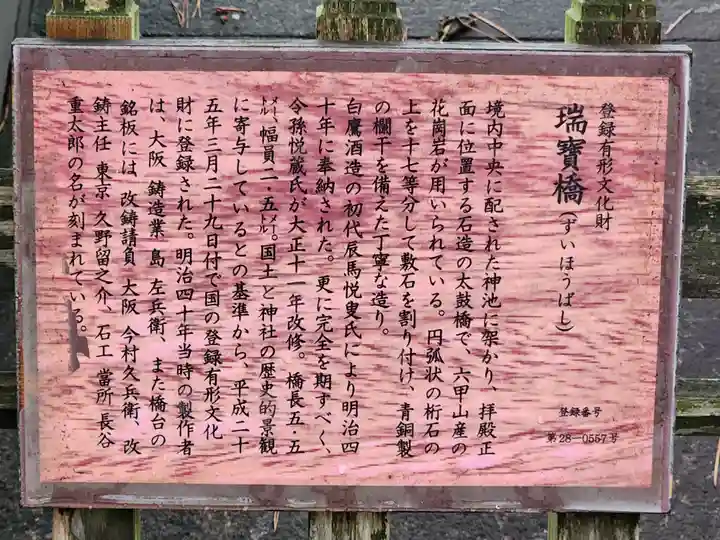 登録有形文化財
瑞寳橋(ずいほうばし)
登録番号
第28―0557号
境内中央に配された神池に架かり、拝殿正
面に位置する石造の太鼓橋で、六甲山産の
花崗岩が用いられている。円弧状の桁石の
上を十七等分して敷石を割り付け、青銅製
の欄干を備えた丁寧な造り。
白鷹酒造の初代辰馬悦叟氏により明治四
十年に奉納された。更に完全を期すべく、
令孫悦蔵氏が大正十一年改修。橋長五・五
メートル、幅員二・五メートル。国土と神社の歴史的景観
に寄与しているとの基準から、平成二十
五年三月二十九日付で国の登録有形文化
財に登録された。明治四十年当時の製作者
は、大阪 鋳造業 島 左兵衛、また橋台の
銘板には、改鋳請負 大阪 今村久兵衛、改
鋳主任 東京 久野留之介、石工 當所 長谷
重太郎の名が刻まれている。